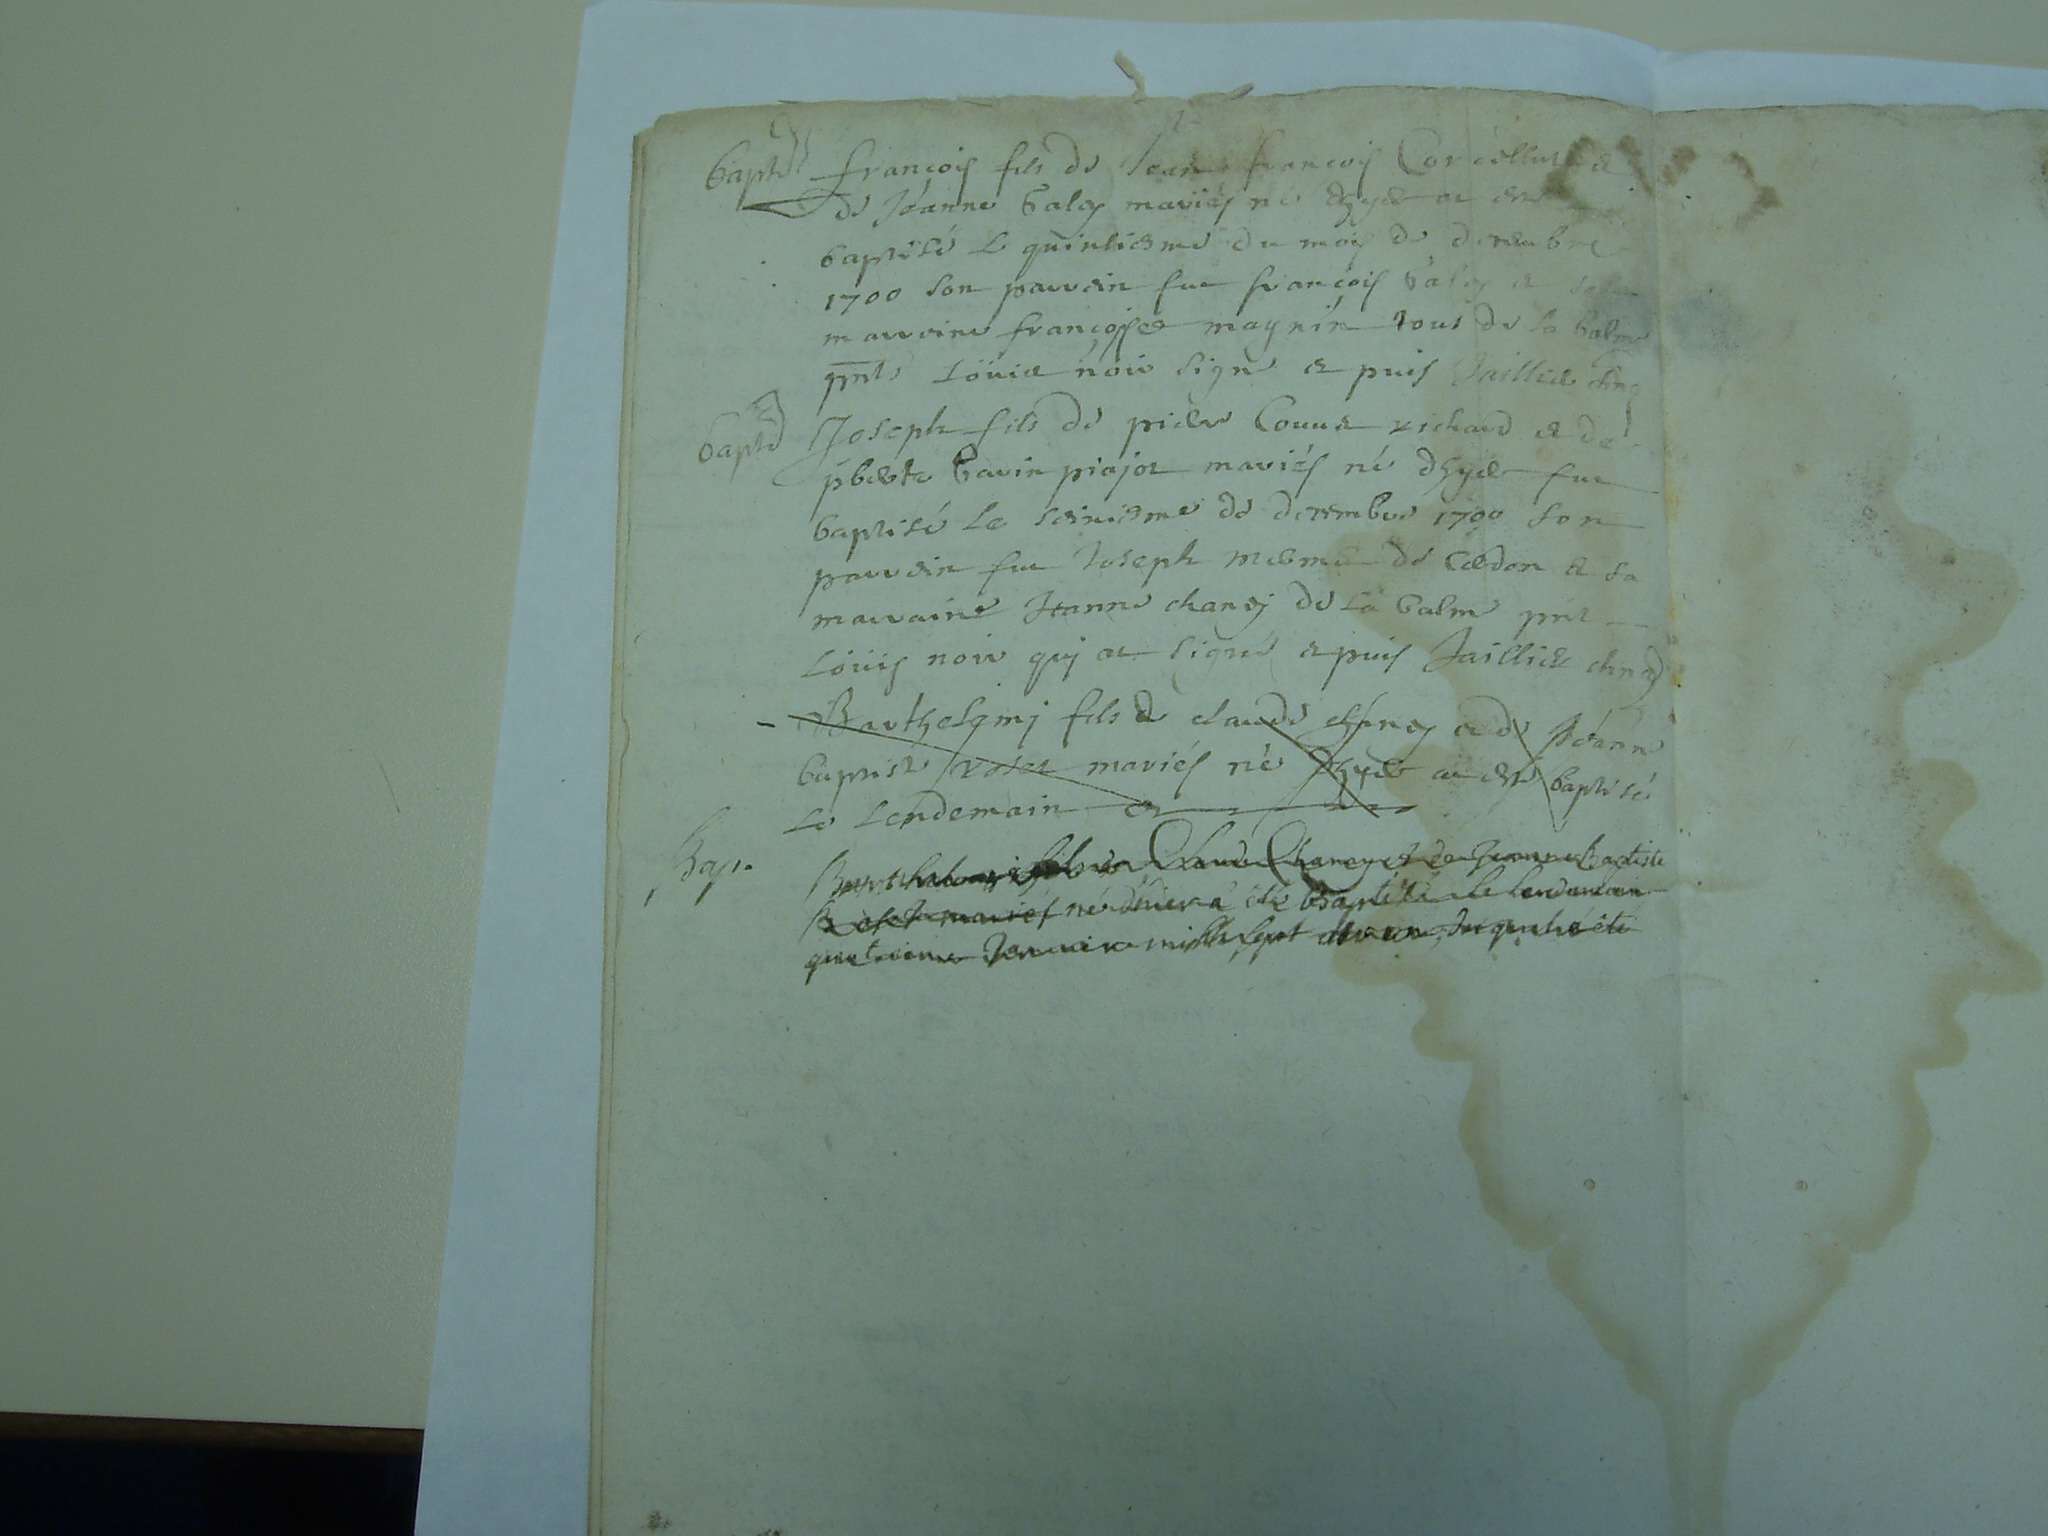 françois fils de Jean françois Corcellut &
de Jeanne Valey mariés né hyer at esté
baptisé le quinsiesme du mois de decembre
1700 son parrein fut françois Valey et sa
marreine françoise magnin tous de la balme
pnts Loüis noir signé et puis Jaillier
Joseph fils de pierre Convert richard et de
pbte Gavin piajot mariés né dhyer fut
baptisé le seiziesme de decembre 1700 son
parrein fut Joseph mermet de Cerdon et sa
marraine Jeanne chaney de la balme pnt
Loüis noir qui at signé et puis Jaillier
Barthelemj fils de claude chaney et de Jeanne
baptiste roset mariés né dhyer at esté baptisé
Le Lendemain
Bap.
Barthelemi fils de Claude Chaney et de Jeanne Baptiste
Roset mariés né d'hier a été Baptisé le lendemain
quatrieme Janvier mille sept cent un, qui a été